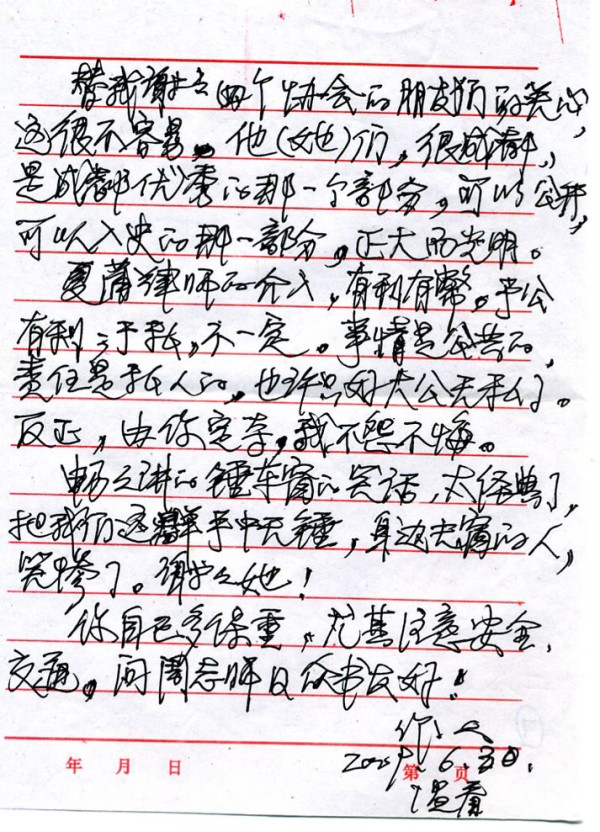 替我谢谢四个协会的朋友们的关心,
这很不容易。他(她)们,很成都,
是成都优秀的那一个部分,可以公开,
可以入史的那一部分,正大而光明。
夏霖律师的介入,有利有弊。于公
有利;于私,不一定。事情是公共的,
责任是私人的,也许只好大公无私了。
反正,由你定夺,我不怨不悔。
讲的锤车窗的笑话,太经典了,
把我们这群手中无锤,身边无窗的人,
笑惨了。谢谢她!
你自己多保重,尤其注意安全、
交通。问周老师及众书友好!
作人
6.30.
温看
年 月 日
第 页